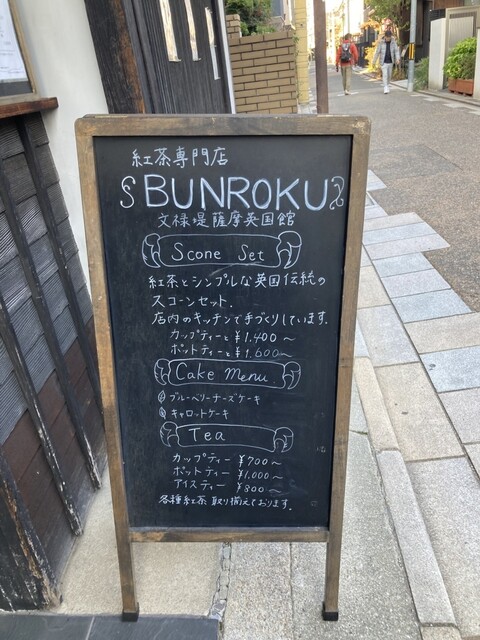 紅茶専門店
BUNROKU
文禄堤薩摩英国館
Scone Set
紅茶とシンプルな英国伝統の
スコーンセット.
店内のキッチンで手づくりしています.
カップティーと ¥1.400〜
ポットティーと ¥1.600〜
Cake Menu.
ブルーベリーチーズケーキ
キャロットケーキ
Tea
カップティー ¥700〜
ポットティー ¥1.000〜
アイスティー ¥800〜
各種紅茶 取り揃えております.